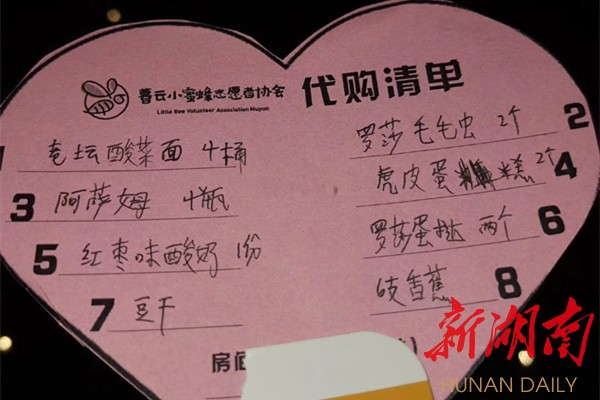 暮云小蜜蜂志愿者协会
Little Bee Volunteer Association Muyun
代购清单
1 老坛酸菜面 4桶
2 罗莎毛毛虫 2个
3 阿萨姆 4瓶
4 虎皮蛋糕 2个
5 红枣味酸奶 1份
6 罗莎蛋挞 两个
7 豆干
8 6支香蕉
房间
新湖南
HUNAN DAILY